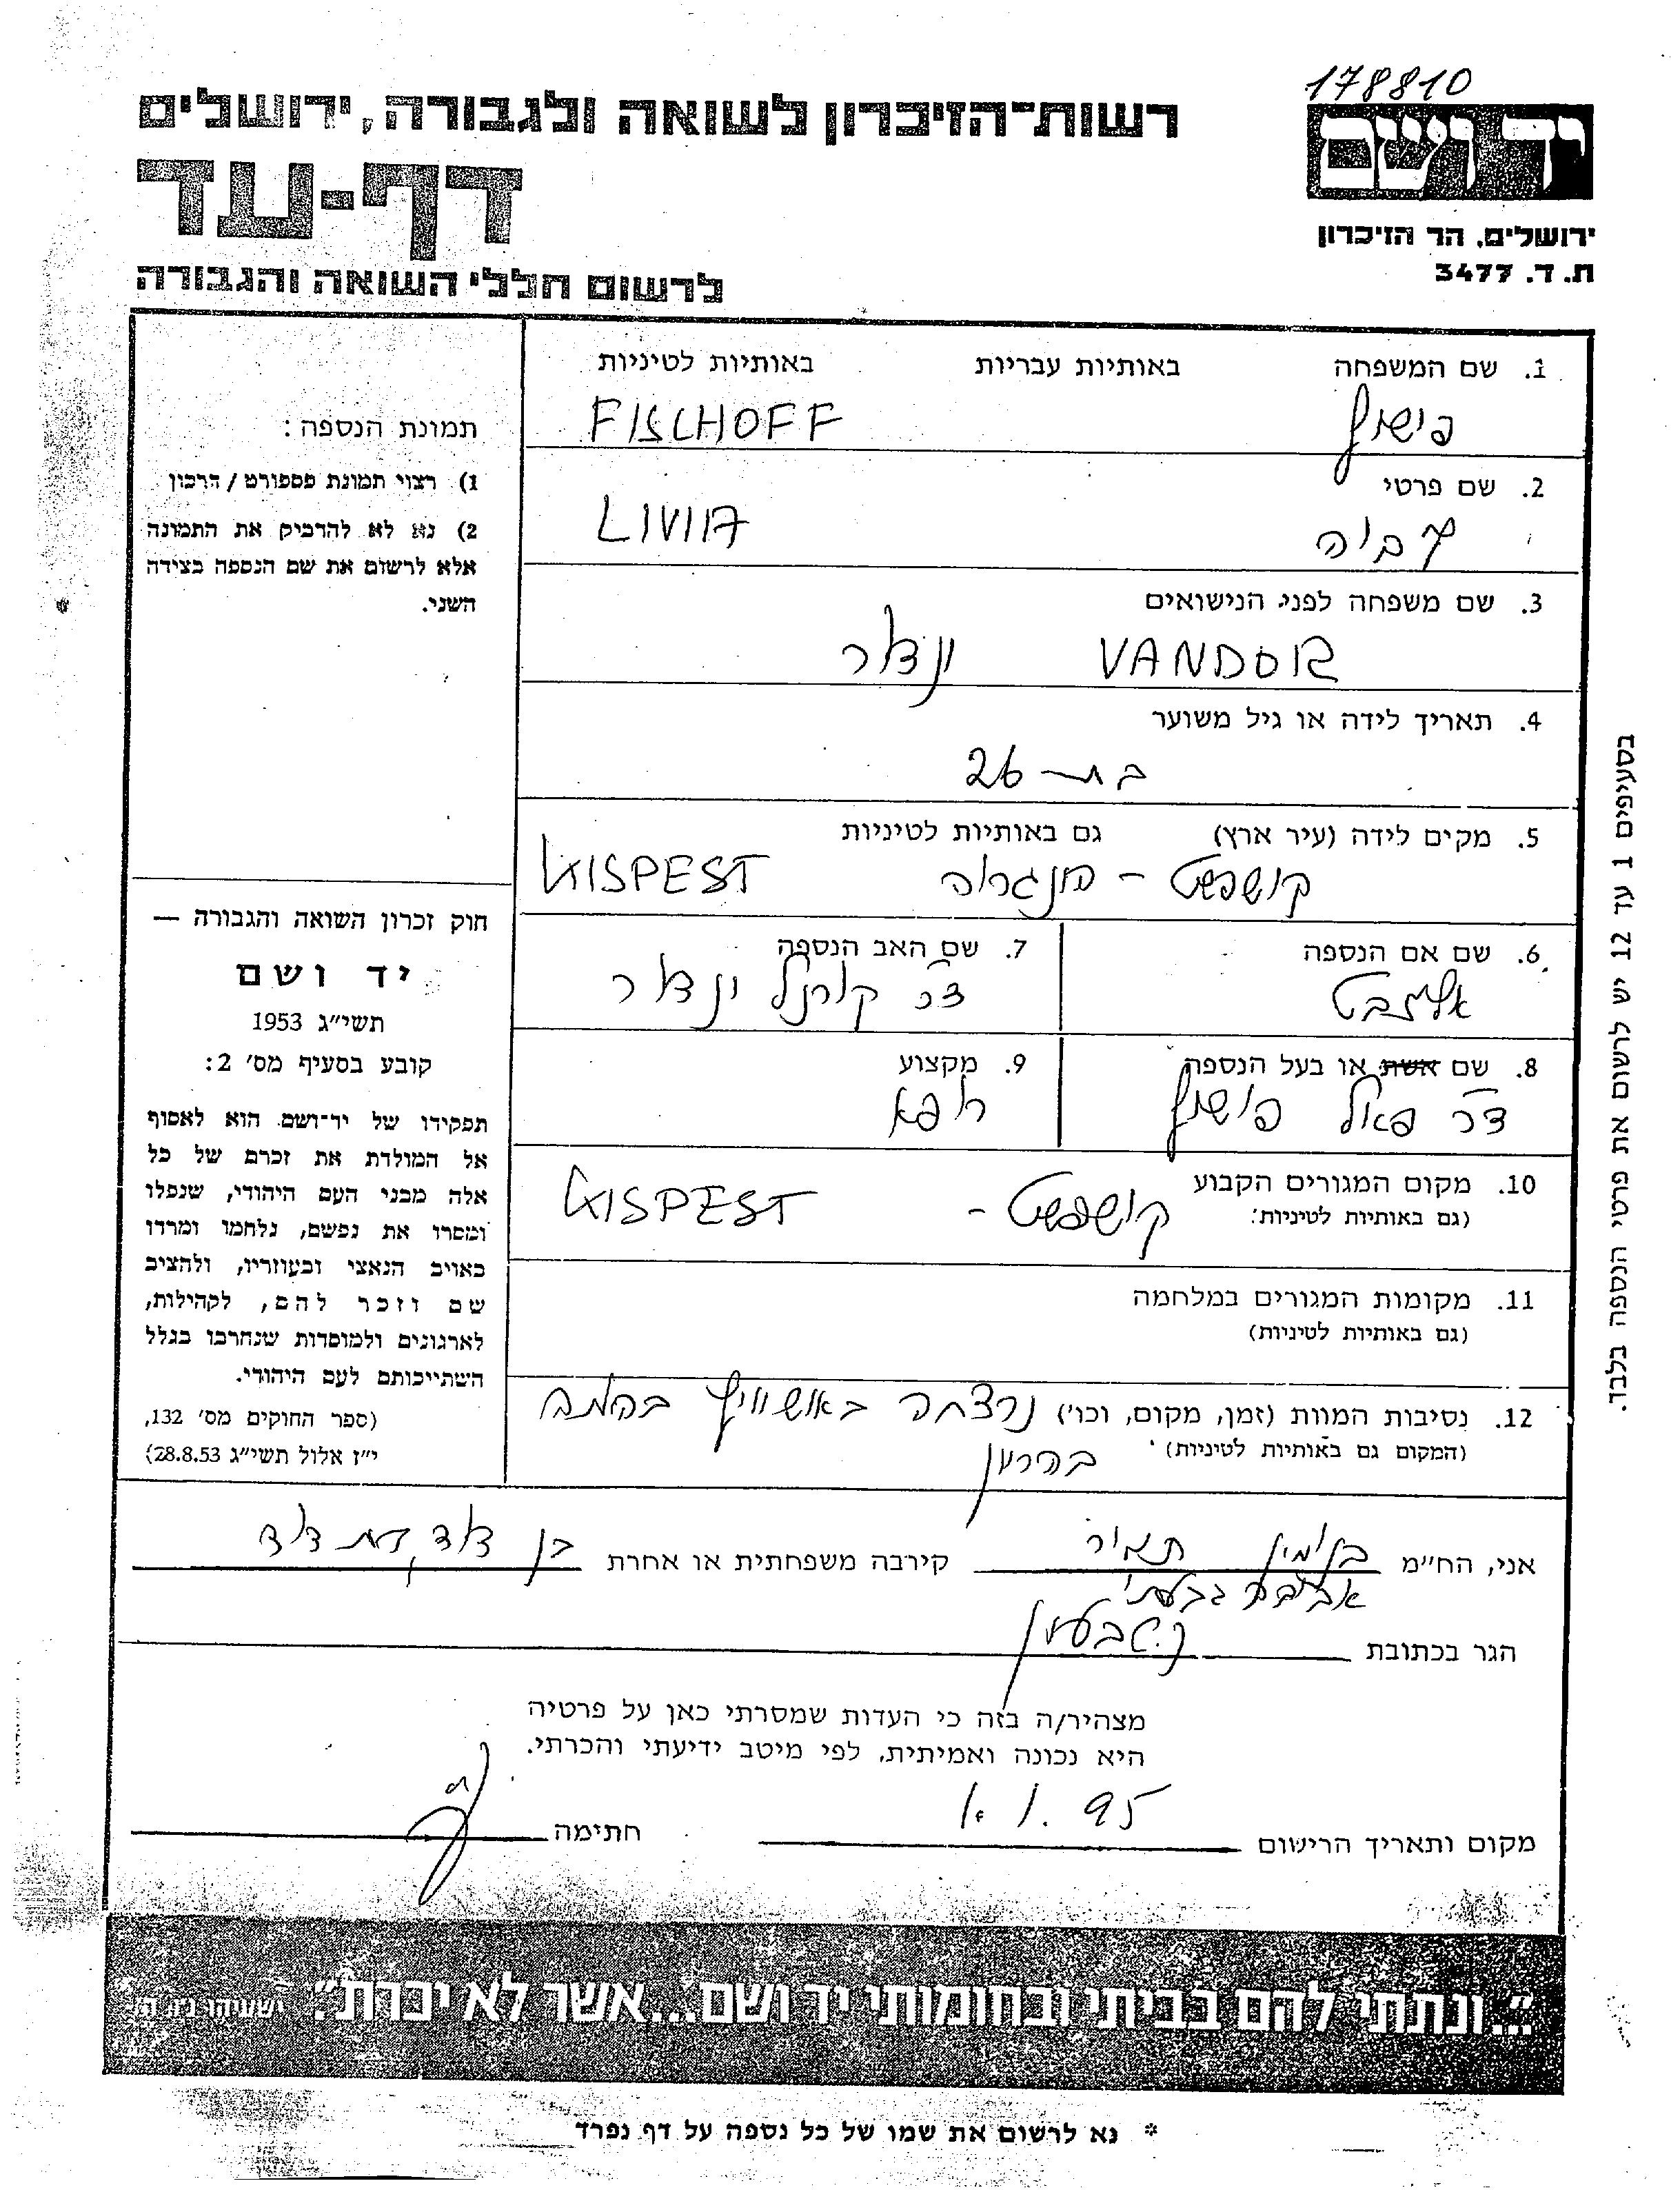 178810
יד ושם
ירושלים, הר הזיכרון
ת. ד. 3477
רשות־הזיכרון לשואה ולגבורה, ירושלים
דף-עד
לרשום חללי השואה והגבורה
1. שם המשפחה באותיות עבריות באותיות לטיניות
פישוף FISCHOFF
2. שם פרטי
ליביה LIVIA
3. שם משפחה לפני הנישואים
VANDOR ונדור
4. תאריך לידה או גיל משוער
בת - 26
5. מקום לידה (עיר ארץ) גם באותיות לטיניות
קישפשט - הונגריה KISPEST
6. שם אם הנספה
אליזבט
7. שם האב הנספה
ד"ר קורנל ונדור
8. שם אשת או בעל הנספה
ד"ר פאול פישוף
9. מקצוע
רופא
10. מקום המגורים הקבוע
(גם באותיות לטיניות)
קישפשט - KISPEST
11. מקומות המגורים במלחמה
(גם באותיות לטיניות)
12. נסיבות המוות (זמן, מקום, וכו') נרצחה באושוויץ בהיותה
(המקום גם באותיות לטיניות)
בהריון
תמונת הנספה:
1) רצוי תמונת פספורט / דרכון
2) נא לא להדביק את התמונה
אלא לרשום את שם הנספה בצידה
השני.
חוק זכרון השואה והגבורה —
יד ושם
תשי"ג 1953
קובע בסעיף מס' 2:
תפקידו של יד־ושם הוא לאסוף
אל המולדת את זכרם של כל
אלה מבני העם היהודי, שנפלו
ומסרו את נפשם, נלחמו ומרדו
באויב הנאצי ובעוזריו, ולהציב
שם וזכר להם, לקהילות,
לארגונים ולמוסדות שנחרבו בגלל
השתייכותם לעם היהודי.
(ספר החוקים מס' 132,
י"ז אלול תשי"ג 28.8.53)
בסעיפים 1 עד 12 יש לרשום את פרטי הנספה בלבד.
אני, הח"מ בנימין תאיר קירבה משפחתית או אחרת בן דוד, בת דוד
אביבה גבעתי
הגר בכתובת ק. טבעון
מצהיר/ה בזה כי העדות שמסרתי כאן על פרטיה
היא נכונה ואמיתית, לפי מיטב ידיעתי והכרתי.
מקום ותאריך הרישום 1.1.95 חתימה
"...ונתתי להם בביתי ובחומותי יד ושם...אשר לא יכרת". ישעיהו נו, ה
* נא לרשום את שמו של כל נספה על דף נפרד